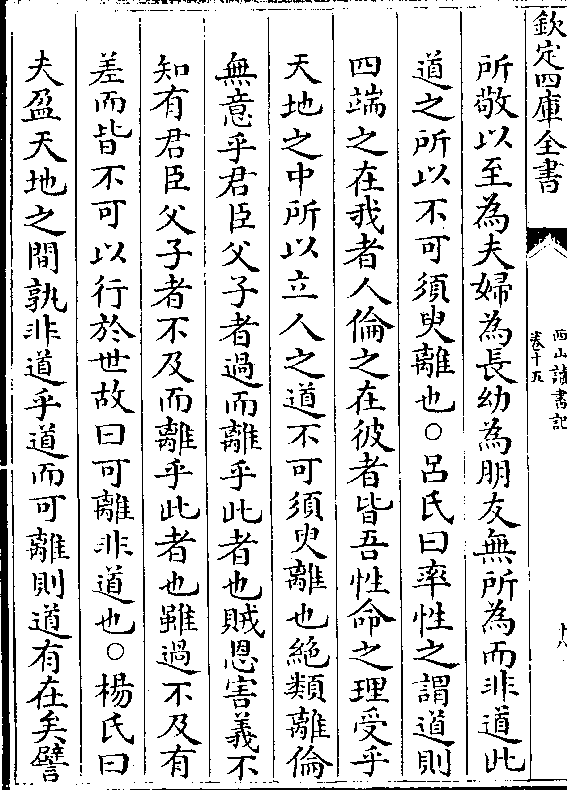 欽定四庫全書
西山讀書記
卷十五
十八
所敬以至為夫婦為長幼為朋友無所為而非道此
道之所以不可須臾離也○呂氏曰率性之謂道則
四端之在我者人倫之在彼者皆吾性命之理受乎
天地之中所以立人之道不可須臾離也絶類離倫
無意乎君臣父子者過而離乎此者也賊恩害義不
知有君臣父子者不及而離乎此者也雖過不及有
差而皆不可以行於世故曰可離非道也○楊氏曰
夫盈天地之間孰非道乎道而可離則道有在矣譬